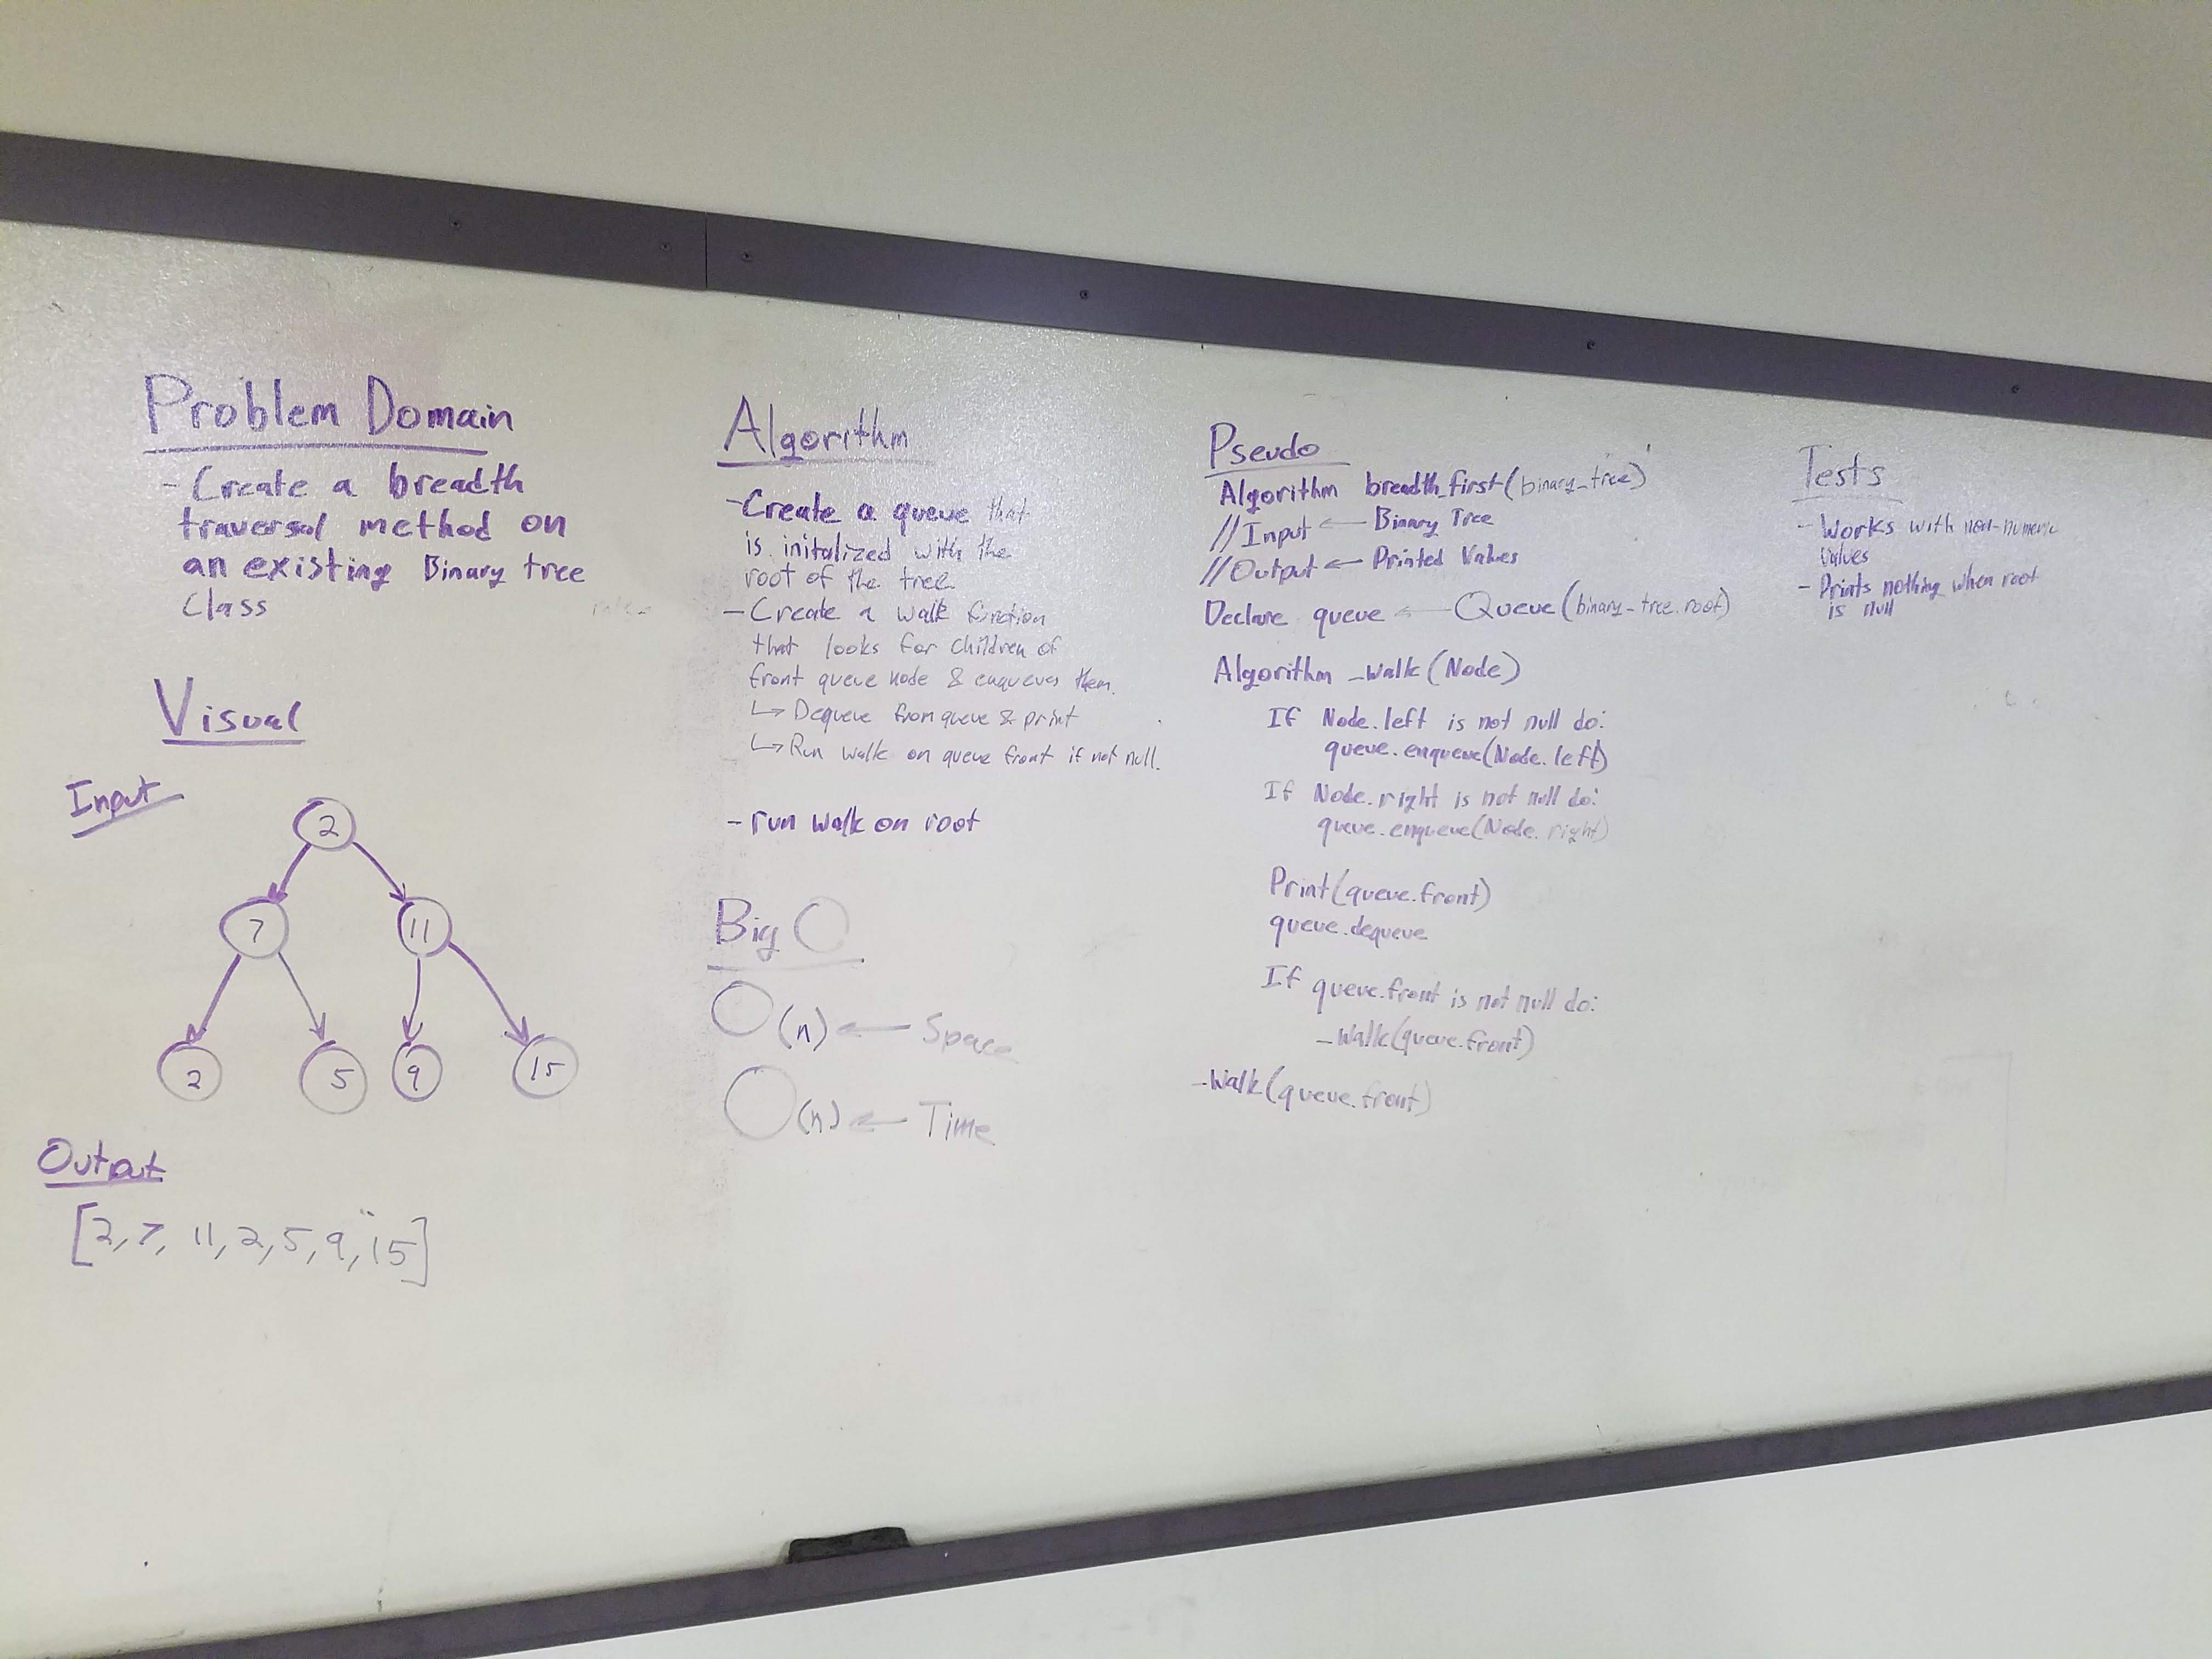 Problem Domain
- Create a breadth
traversal method on
an existing Binary tree
Class
Visual
Input
2
7
11
2
5
9
15
Output
[2, 7, 11, 2, 5, 9, 15]
Algorithm
- Create a queue that
is initalized with the
root of the tree
- Create a walk function
that looks for children of
front queue node & enqueues them.
↳ Dequeue from queue & print
↳ Run walk on queue front if not null.
- run walk on root
Big O
O(n) ← Space
O(n) ← Time
Pseudo
Algorithm breadth_first(binary_tree)
//Input ← Binary Tree
//Output ← Printed Values
Declare queue ← Queue(binary_tree.root)
Algorithm _walk(Node)
If Node.left is not null do:
queue.enqueue(Node.left)
If Node.right is not null do:
queue.enqueue(Node.right)
Print(queue.front)
queue.dequeue
If queue.front is not null do:
_Walk(queue.front)
_Walk(queue.front)
Tests
- Works with non-numeric
Values
- Prints nothing when root
is null